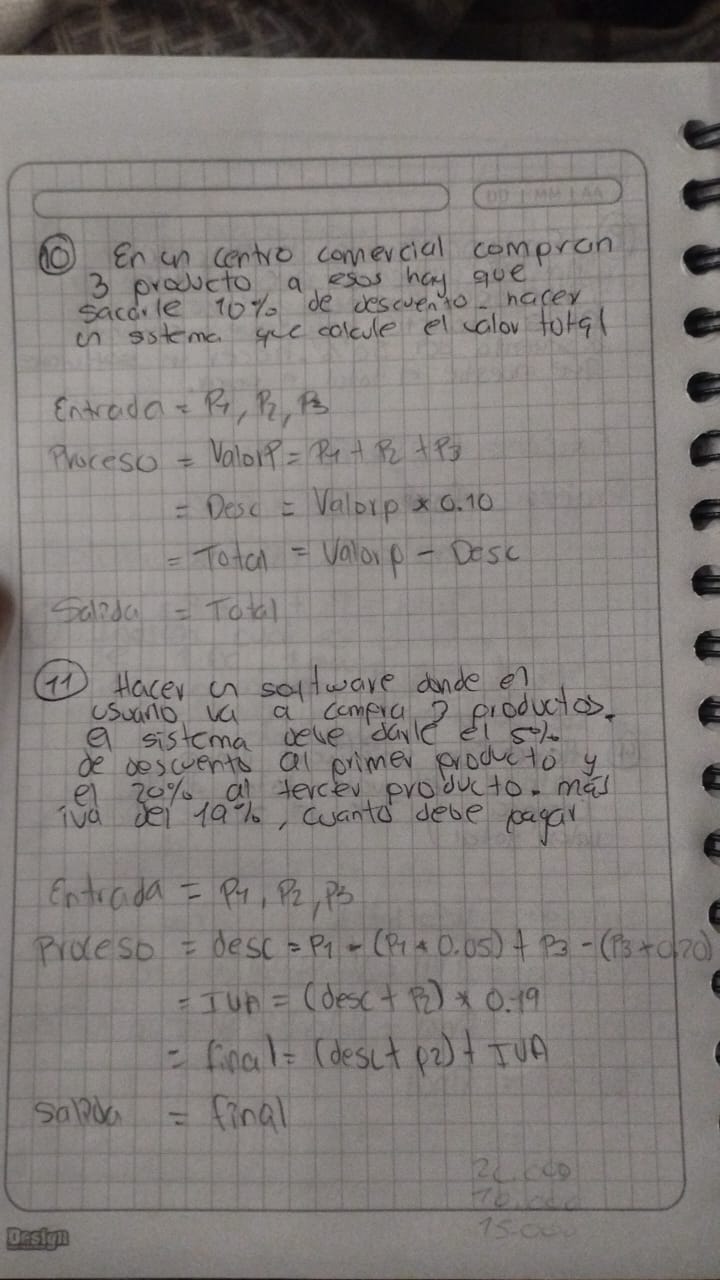 DD | MM | AA
10 En un centro comercial compran
3 producto, a esos hay que
sacarle 10% de descuento. hacer
un sistema que calcule el valor total
Entrada = P1, P2, P3
Proceso = ValorP = P1 + P2 + P3
= Desc = Valorp * 0.10
= Total = Valorp - Desc
Salida = Total
11 Hacer un software donde el
usuario va a compra 3 productos.
el sistema debe darle el 5%
de descuento al primer producto y
el 20% al tercer producto. más
iva del 19%, cuanto debe pagar
Entrada = P1, P2, P3
Proceso = desc = P1 - (P1 * 0.05) + P3 - (P3 * 0.20)
= IVA = (desc + P2) * 0.19
= final = (desc + p2) + IVA
Salida = final
10.000
15.000
Design